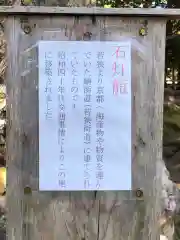 石灯籠
若狭より京都へ海産物や物資を運ん
でいた鯖街道(若狭街道)に建てられ
ていたものです
昭和四十年代交通事情によりこの地
に移築されました